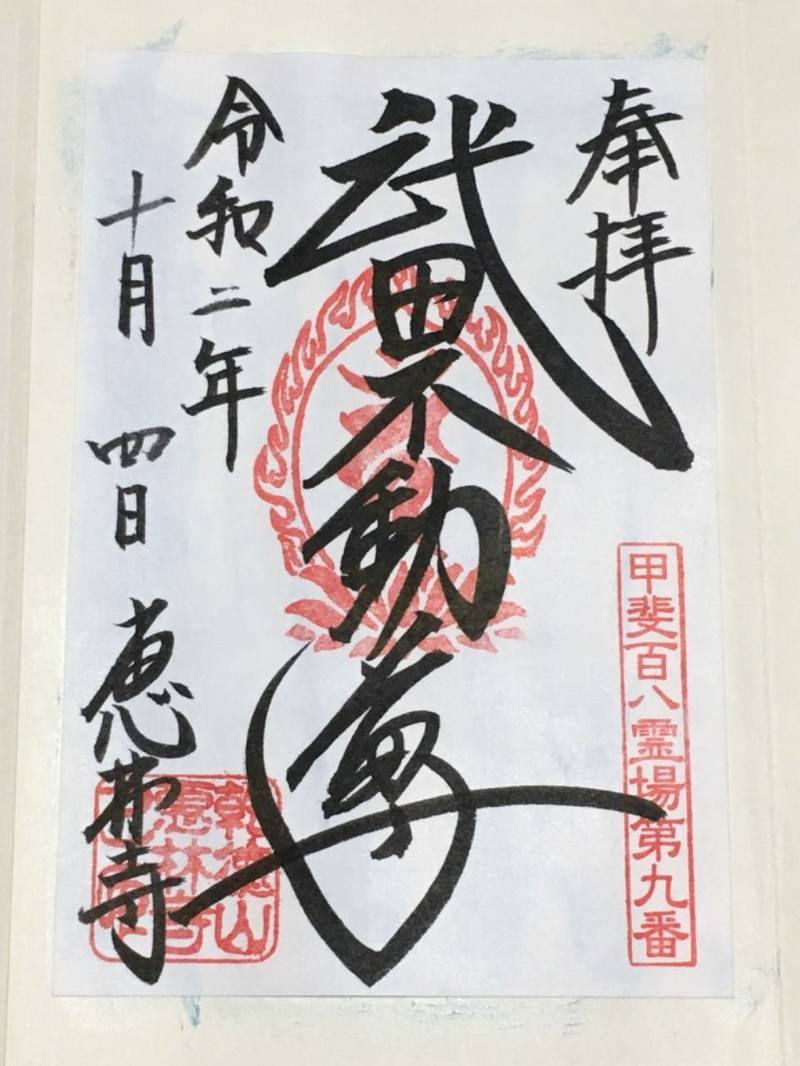 奉拝
甲斐百八霊場第九番
武田不動尊
令和二年
十月四日
恵林寺
乾徳山
恵林寺